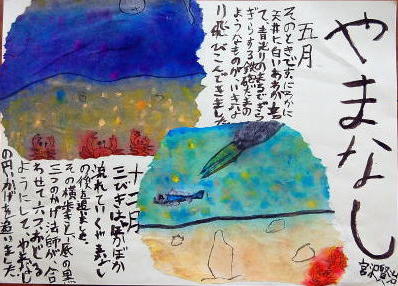 やまなし
宮沢賢治
五月
そのときです。にわかに
天井に白いあわが立っ
て、青光りのまるでぎら
ぎらする鉄砲だまの
ようなものが、いきな
り飛びこんできました
十二月
三びきはぼかぼか
流れていくやまなし
の後を追いました。
その横歩きと、底の黒
三つのかげ法師が、合
わせて六つ、おどる
ようにして、やまなし
の円いかげを追いました